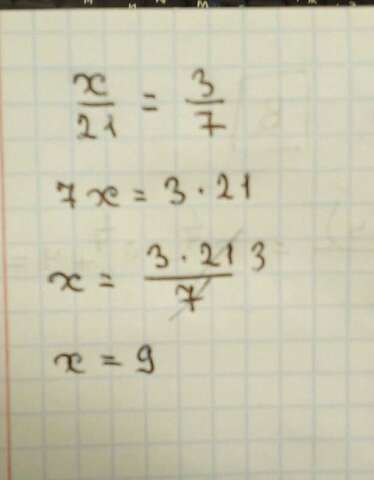 x/21 = 3/7
7x = 3 · 21
x = 3 · 21 3/7
x = 9